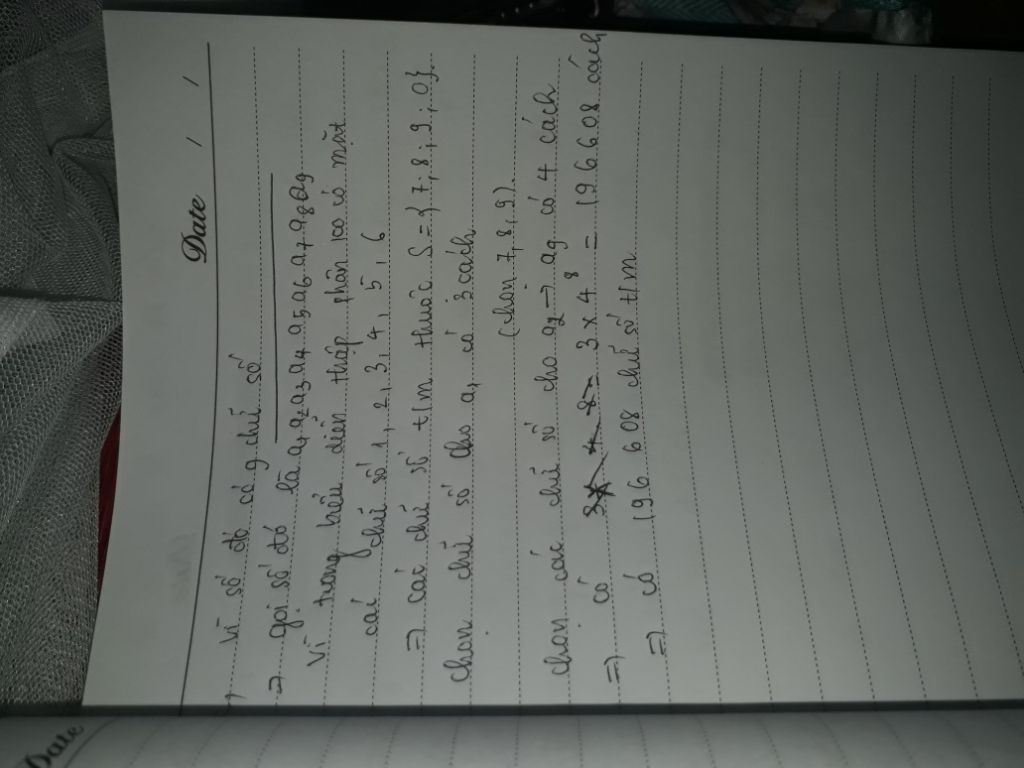 Date / /
Vì số đó có 9 chữ số
=> gọi số đó là a1a2a3a4a5a6a7a8a9
Vì trong biểu diễn thập phân 100 có mặt
các chữ số 1, 2, 3, 4, 5, 6
=> các chữ số t/m thuộc S = {7, 8, 9, 0}
chọn chữ số cho a1 có 3 cách
(chọn 7, 8, 9)
chọn các chữ số cho a2 -> a9 có 4 cách
=> có 3 x 4^8 = 196608 cách
=> có 196 608 chữ số t/m
Date